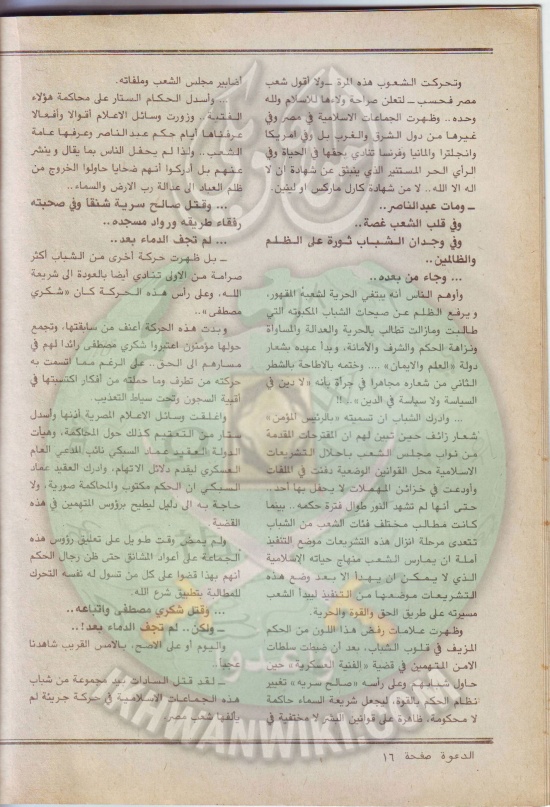 وتحركت الشعوب هذه المرة ــ ولا أقول شعب
مصر فحسب ــ لتعلن صراحة ولاءها للاسلام ولله
وحده .. وظهرت الجماعات الاسلامية في مصر وفي
غيرها من دول الشرق والغرب بل وفي امريكا
وانجلترا والمانيا وفرنسا تنادي بحقها في الحياة وفي
الرأي الحر المستنير الذي ينبثق عن شهادة ان لا
اله الا الله .. لا من شهادة كارل ماركس او لينين.
ــ ومات عبدالناصر ..
وفي قلب الشعب غصة ..
وفي وجدان الشباب ثورة على الظلم
والظالمين ..
... وجاء من بعده ..
وأوهم الناس أنه يبتغي الحرية لشعبه المقهور،
ويرفع الظلم عن صيحات الشباب المكبوته التي
طالبت ومازالت تطالب بالحرية والعدالة والمساواة
ونزاهة الحكم والشرف والأمانة، وبدأ عهده بشعار
دولة «العلم والايمان» .... وختمه بالاطاحة بالشطر
الثاني من شعاره مجاهرا في جرأة بأنه «لا دين في
السياسة ولا سياسة في الدين» .. !!
... وأدرك الشباب ان تسميته «بالرئيس المؤمن»
شعار زائف حين تبين لهم ان المقترحات المقدمة
من نواب مجلس الشعب باحلال التشريعات
الاسلامية محل القوانين الوضعية دفنت في الملفات
وأودعت في خزائن المهملات لا يحفل بها أحد ..
حتى أنها لم تشهد النور طوال فترة حكمه .. بينما
كانت مطالب مختلف فئات الشعب من الشباب
تتعدى مرحلة انزال هذه التشريعات موضع التنفيذ
أملا ان يمارس الشعب منهاج حياته الإسلامية
الذي لا يمكن ان يهدأ الا بعد وضع هذه
التشريعات موضعها من التنفيذ ليبدأ الشعب
مسيرته على طريق الحق والقوة والحرية.
وظهرت علامات رفض هذا اللون من الحكم
المزيف في قلوب الشباب، بعد أن ضبطت سلطات
الامن المتهمين في قضية «الفنية العسكرية» حين
حاول شبابهم وعلى رأسه «صالح سريه» تغيير
نظام الحكم بالقوة، ليجعل شريعة السماء حاكمة
لا محكومة، ظاهرة على قوانين البشر لا مختفية في
أضابير مجلس الشعب وملفاته.
... وأسدل الحكام الستار على محاكمة هؤلاء
الفتية .. وزورت وسائل الاعلام أقوالا وأفعالا
عرفناها أيام حكم عبدالناصر وعرفها عامة
الشعب .. ولذا لم يحفل الناس بما يقال وينشر
عنهم بل أدركوا أنهم ضحايا حاولوا الخروج من
ظلم العباد الى عدالة رب الارض والسماء ..
... وقتل صالح سرية شنقا وفي صحبته
رفقاء طريقه ورواد مسجده ..
... لم تجف الدماء بعد ..
ــ بل ظهرت حركة أخرى من الشباب أكثر
صرامة من الاولى تنادي أيضا بالعودة الى شريعة
الله، وعلى رأس هذه الحركة كان «شكري
مصطفى» ..
وبدت هذه الحركة أعنف من سابقتها، وتجمع
حولها مؤمنون اعتبروا شكري مصطفى رائدا لهم في
مسارهم الى الحق .. على الرغم مما اتسمت به
حركته من تطرف وما حملته من أفكار اكتسبتها في
أقبية السجون وتحت سياط التعذيب.
واغلقت وسائل الاعلام المصرية أذنها وأسدل
ستار من التعتيم كذلك حول المحاكمة، وهيأت
الدولة العقيد عماد السبكي نائب المدعي العام
العسكري ليقدم دلائل الاتهام، وادرك العقيد عماد
السبكي ان الحكم مكتوب والمحاكمة صورية، ولا
حاجة به الى دليل ليطيح برؤوس المتهمين في هذه
القضية
ولم يمض وقت طويل على تعليق رؤوس هذه
الجماعة على أعواد المشانق حتى ظن رجال الحكم
أنهم بهذا قضوا على كل من تسول له نفسه التحرك
للمطالبة بتطبيق شرع الله.
... وقتل شكري مصطفى واتباعه ..
ــ ولكن .. لم تجف الدماء بعد ! ..
واليوم أو على الاصح، بالامس القريب شاهدنا
عجبا ..
ــ لقد قتل السادات بيد مجموعة من شباب
هذه الجماعات الاسلامية في حركة جريئة لم
يألفها شعب مصر.
الدعوة صفحة ١٦
IKHWANWIKI.COM